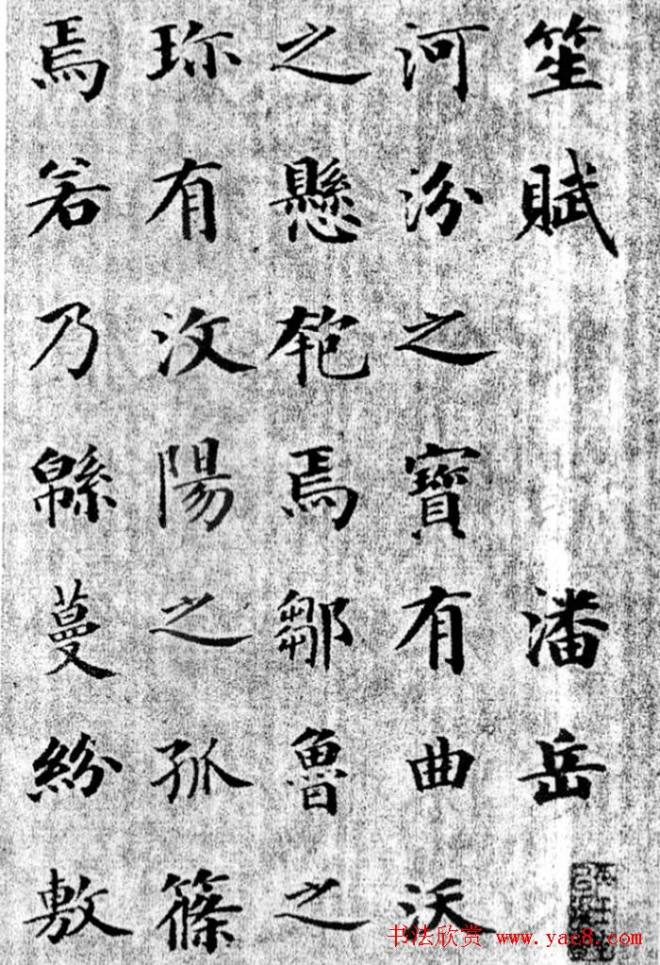 笙賦 潘岳
河汾之寶有曲沃
之懸匏焉鄒魯之
珎有汶陽之孤篠
焉若乃緜蔓紛敷
书法欣赏 www.yac8.com